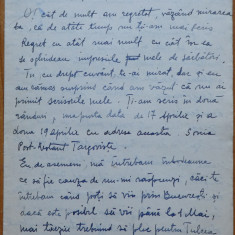 Of, cât de mult am regretat, văzând mirarea
ta, că de atâta timp nu ți-am mai scris
Regret cu atât mai mult cu cât îmi
se oglindeau mele de sărbători.
Tu cu drept cuvânt, te-ai mirat, dar și eu
am rămas surprins când am văzut că nu ai
primit scrisorile mele. Ți-am scris în două
rânduri, una pe data de 17 Aprilie și a
doua 19 aprilie cu adresa aceasta Sonia
Post-Restant Targoviste
Eu de asemeni, mă întrebam întotdeauna
ce să fie cauza de nu-mi răspunzi, căci te
întrebam când poți să vii prin București și
dacă este posibil să vii până la 1 Mai,
mai târziu trebuind să plec pentru Tulcea